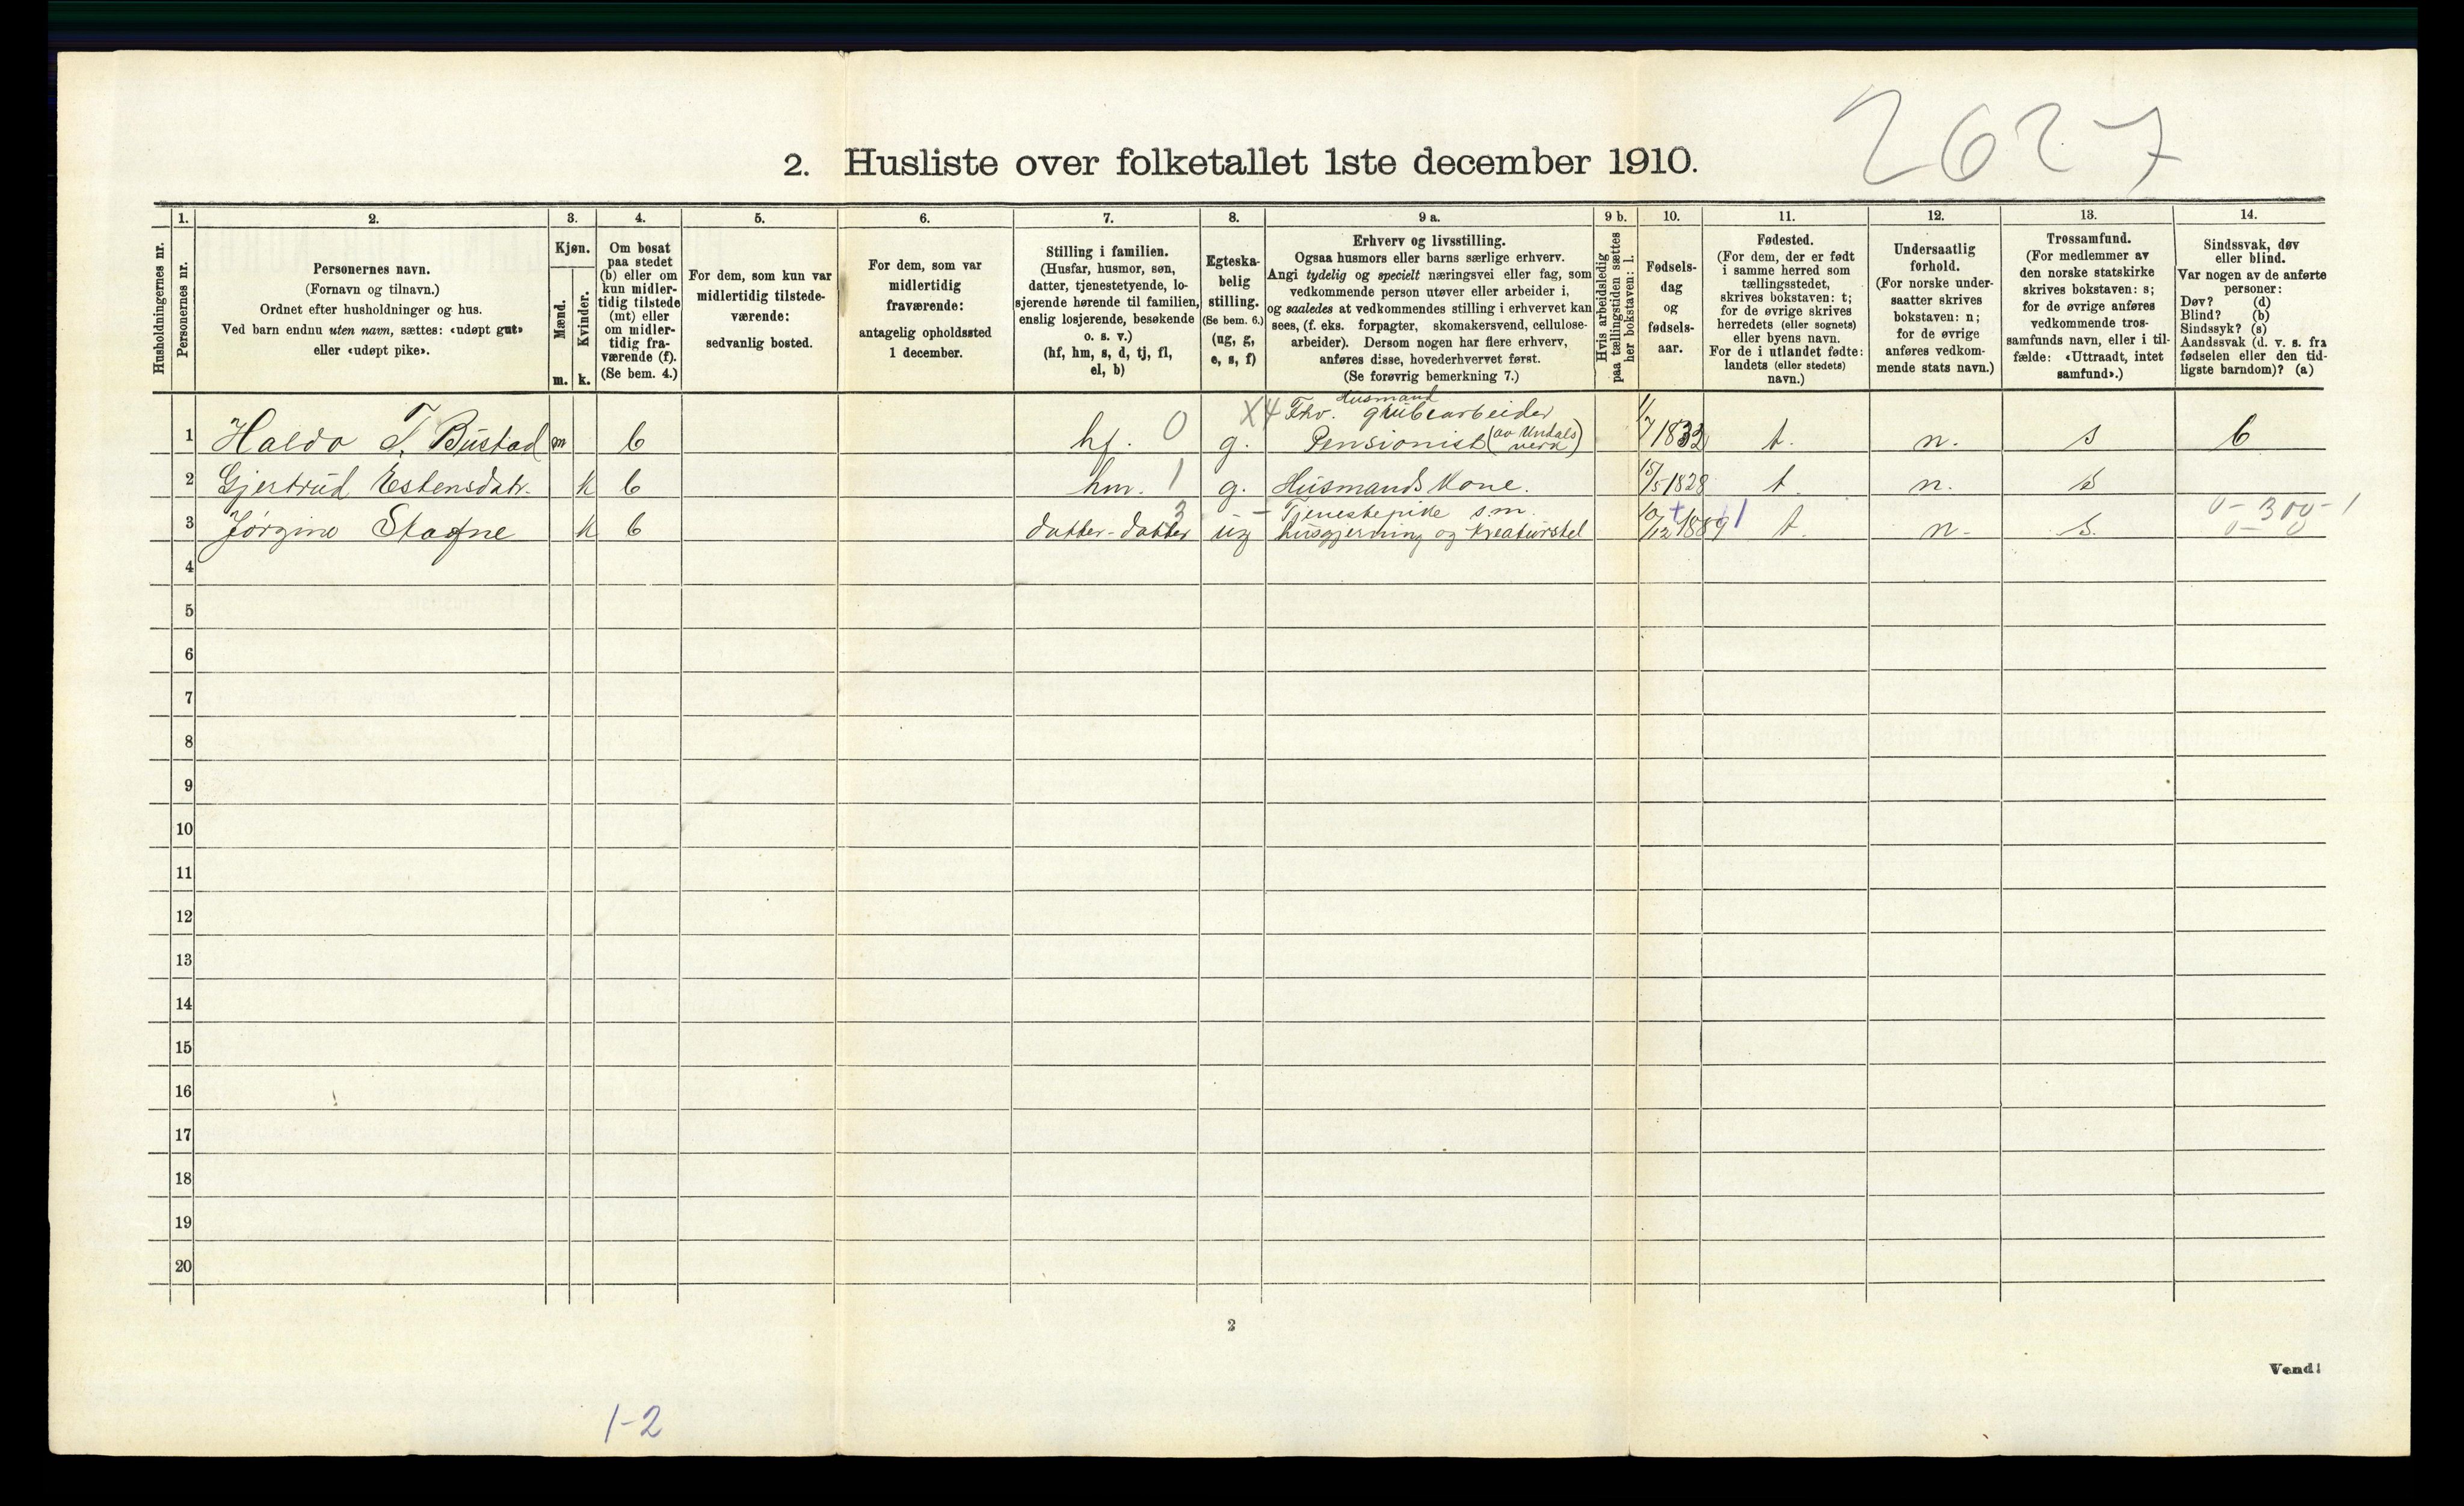 2627
2. Husliste over folketallet 1ste december 1910.
Husholdningernes nr.
1.
Personernes nr.
2.
Personernes navn.
(Fornavn og tilnavn.)
Ordnet efter husholdninger og hus.
Ved barn endnu uten navn, sættes: «udøpt gut»
eller «udøpt pike».
3.
Kjøn.
Mænd.
Kvinder.
m. k.
4.
Om bosat
paa stedet
(b) eller om
kun midler-
tidig tilstede
(mt) eller
om midler-
tidig fra-
værende (f).
(Se bem. 4.)
5.
For dem, som kun var
midlertidig tilstede-
værende:
sedvanlig bosted.
6.
For dem, som var
midlertidig
fraværende:
antagelig opholdssted
1 december.
7.
Stilling i familien.
(Husfar, husmor, søn,
datter, tjenestetyende, lo-
sjerende hørende til familien,
enslig losjerende, besøkende
o. s. v.)
(hf, hm, s, d, tj, fl,
el, b)
8.
Egteska-
belig
stilling.
(Se bem. 6.)
(ug, g,
e, s, f)
9 a.
Erhverv og livsstilling.
Ogsaa husmors eller barns særlige erhverv.
Angi tydelig og specielt næringsvei eller fag, som
vedkommende person utøver eller arbeider i,
og saaledes at vedkommendes stilling i erhvervet kan
sees, (f. eks. forpagter, skomakersvend, cellulose-
arbeider). Dersom nogen har flere erhverv,
anføres disse, hovederhvervet først.
(Se forøvrig bemerkning 7.)
9 b.
Hvis arbeidsledig
paa tællingstiden sættes
her bokstaven: l.
10.
Fødsels-
dag
og
fødsels-
aar.
11.
Fødested.
(For dem, der er født
i samme herred som
tællingsstedet,
skrives bokstaven: t;
for de øvrige skrives
herredets (eller sognets)
eller byens navn.
For de i utlandet fødte:
landets (eller stedets)
navn.)
12.
Undersaatlig
forhold.
(For norske under-
saatter skrives
bokstaven: n;
for de øvrige
anføres vedkom-
mende stats navn.)
13.
Trossamfund.
(For medlemmer av
den norske statskirke
skrives bokstaven: s;
for de øvrige anføres
vedkommende tros-
samfunds navn, eller i til-
fælde: «Uttraadt, intet
samfund».)
14.
Sindssvak, døv
eller blind.
Var nogen av de anførte
personer:
Døv? (d)
Blind? (b)
Sindssyk? (s)
Aandssvak (d. v. s. fra
fødselen eller den tid-
ligste barndom)? (a)
Husmand
X4 Fhv. grubearbeider
1 Haldo T. Bustad m b hf. 0 g. Pensionist (av Undals verk) 1/7 1832 t. n. s b
2 Gjertrud Estensdatr. k b hm. 1 g. Husmands kone. 15/5 1828 t. n. s
3 - Tjenestepike s.m. 0-300-1
3 Jørgine Stafne k b datter-datter ug husgjerning og kreaturstel 10/12 1889 t. n. s.
4
5
6
7
8
9
10
11
12
13
14
15
16
17
18
19
20
2
Vend!
1-2